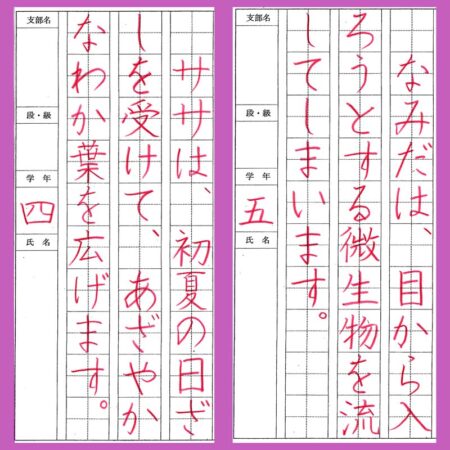 なみだは、目から入
ろうとする微生物を流
してしまいます。
支部名
段・級
学年
五
氏名
ササは、初夏の日ざ
しを受けて、あざやか
なわか葉を広げます。
支部名
段・級
学年
四
氏名